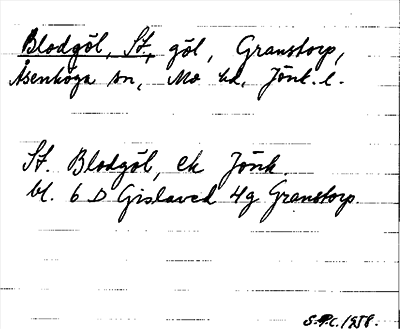 Blodgöl, St., göl, Granstorp,
Åsenhöga sn, Mo hd, Jönk. l.
St. Blodgöl, ek Jönk.
bl. 6 D Gislaved 4g Granstorp.
S.P.C. 1958.